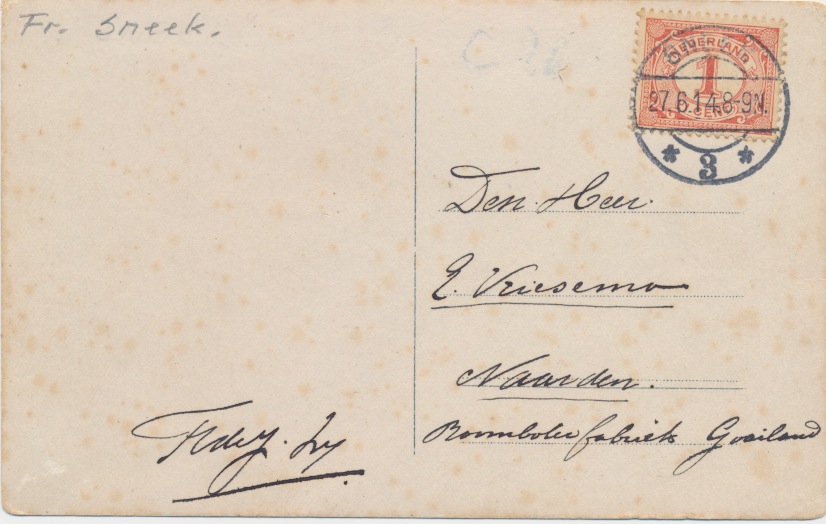 Fr. Sneek.
NEDERLAND
1
27.6.14 8-9N.
CENT
* 3 *
Den Heer.
E. Vriesema
Naarden.
Roomboterfabriek Gooiland